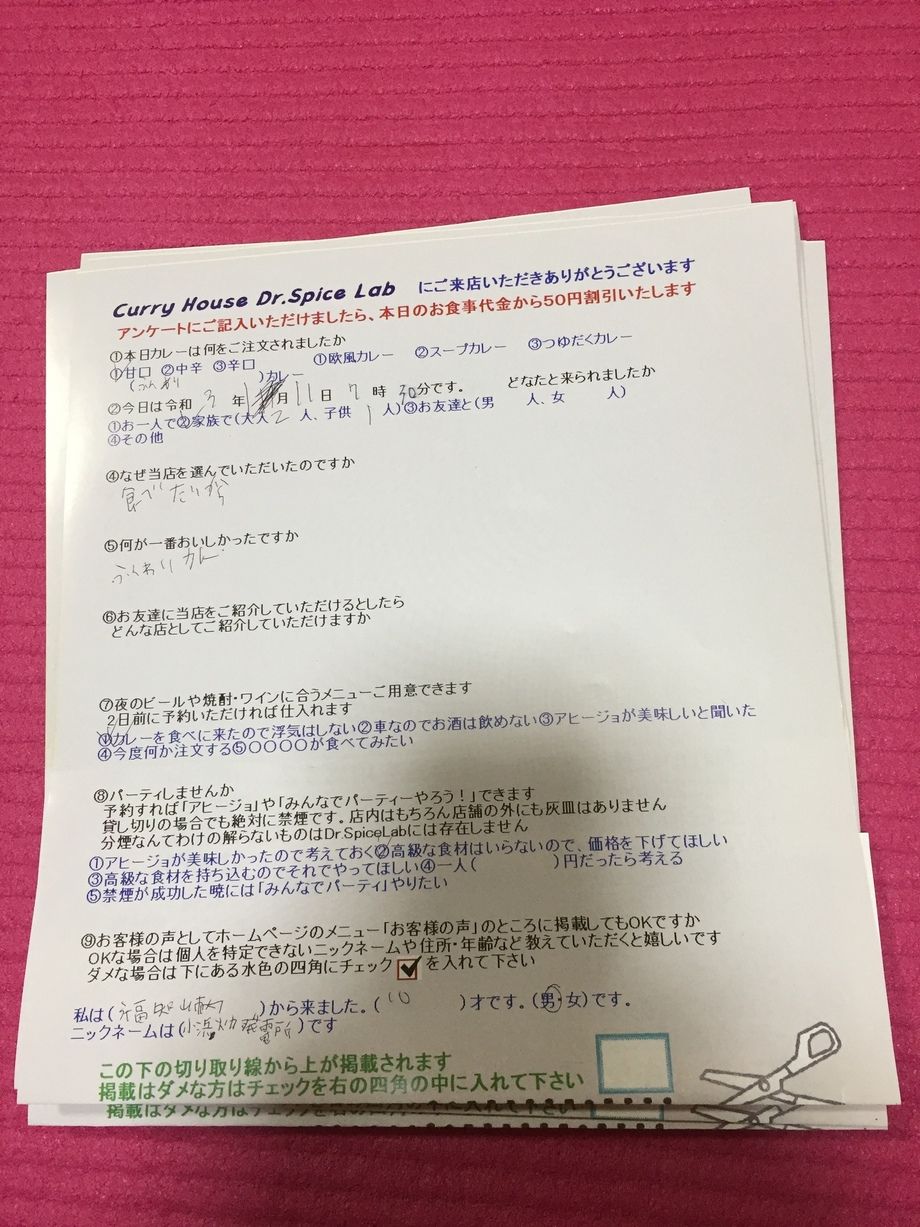 Curry House Dr.Spice Lab にご来店いただきありがとうございます
アンケートにご記入いただけましたら、本日のお食事代金から50円割引いたします
①本日カレーは何をご注文されましたか
①甘口 ②中辛 ③辛口 ①欧風カレー ②スープカレー ③つゆだくカレー
(ふんわり )カレー
②今日は令和 3 年 1 月 11 日 7 時 30 分です。 どなたと来られましたか
①お一人で②家族で(大人 2 人、子供 1 人)③お友達と(男 人、女 人)
④その他
④なぜ当店を選んでいただいたのですか
食べたいから
⑤何が一番おいしかったですか
ふんわりカレー
⑥お友達に当店をご紹介していただけるとしたら
どんな店としてご紹介していただけますか
⑦夜のビールや焼酎・ワインに合うメニューご用意できます
2日前に予約いただければ仕入れます
①カレーを食べに来たので浮気はしない②車なのでお酒は飲めない③アヒージョが美味しいと聞いた
④今度何か注文する⑤〇〇〇〇が食べてみたい
⑧パーティしませんか
予約すれば「アヒージョ」や「みんなでパーティーやろう!」できます
貸し切りの場合でも絶対に禁煙です。店内はもちろん店舗の外にも灰皿はありません
分煙なんてわけの解らないものはDr.SpiceLabには存在しません
①アヒージョが美味しかったので考えておく②高級な食材はいらないので、価格を下げてほしい
③高級な食材を持ち込むのでそれでやってほしい④一人( )円だったら考える
⑤禁煙が成功した暁には「みんなでパーティ」やりたい
⑨お客様の声としてホームページのメニュー「お客様の声」のところに掲載してもOKですか
OKな場合は個人を特定できないニックネームや住所・年齢など教えていただくと嬉しいです
ダメな場合は下にある水色の四角にチェック を入れて下さい
私は(福知山市 )から来ました。( 10 )才です。(男・女)です。
ニックネームは(小浜火力発電所)です
この下の切り取り線から上が掲載されます
掲載はダメな方はチェックを右の四角の中に入れて下さい
掲載はダメな方はチェックを右の四角の中に入れて下さい